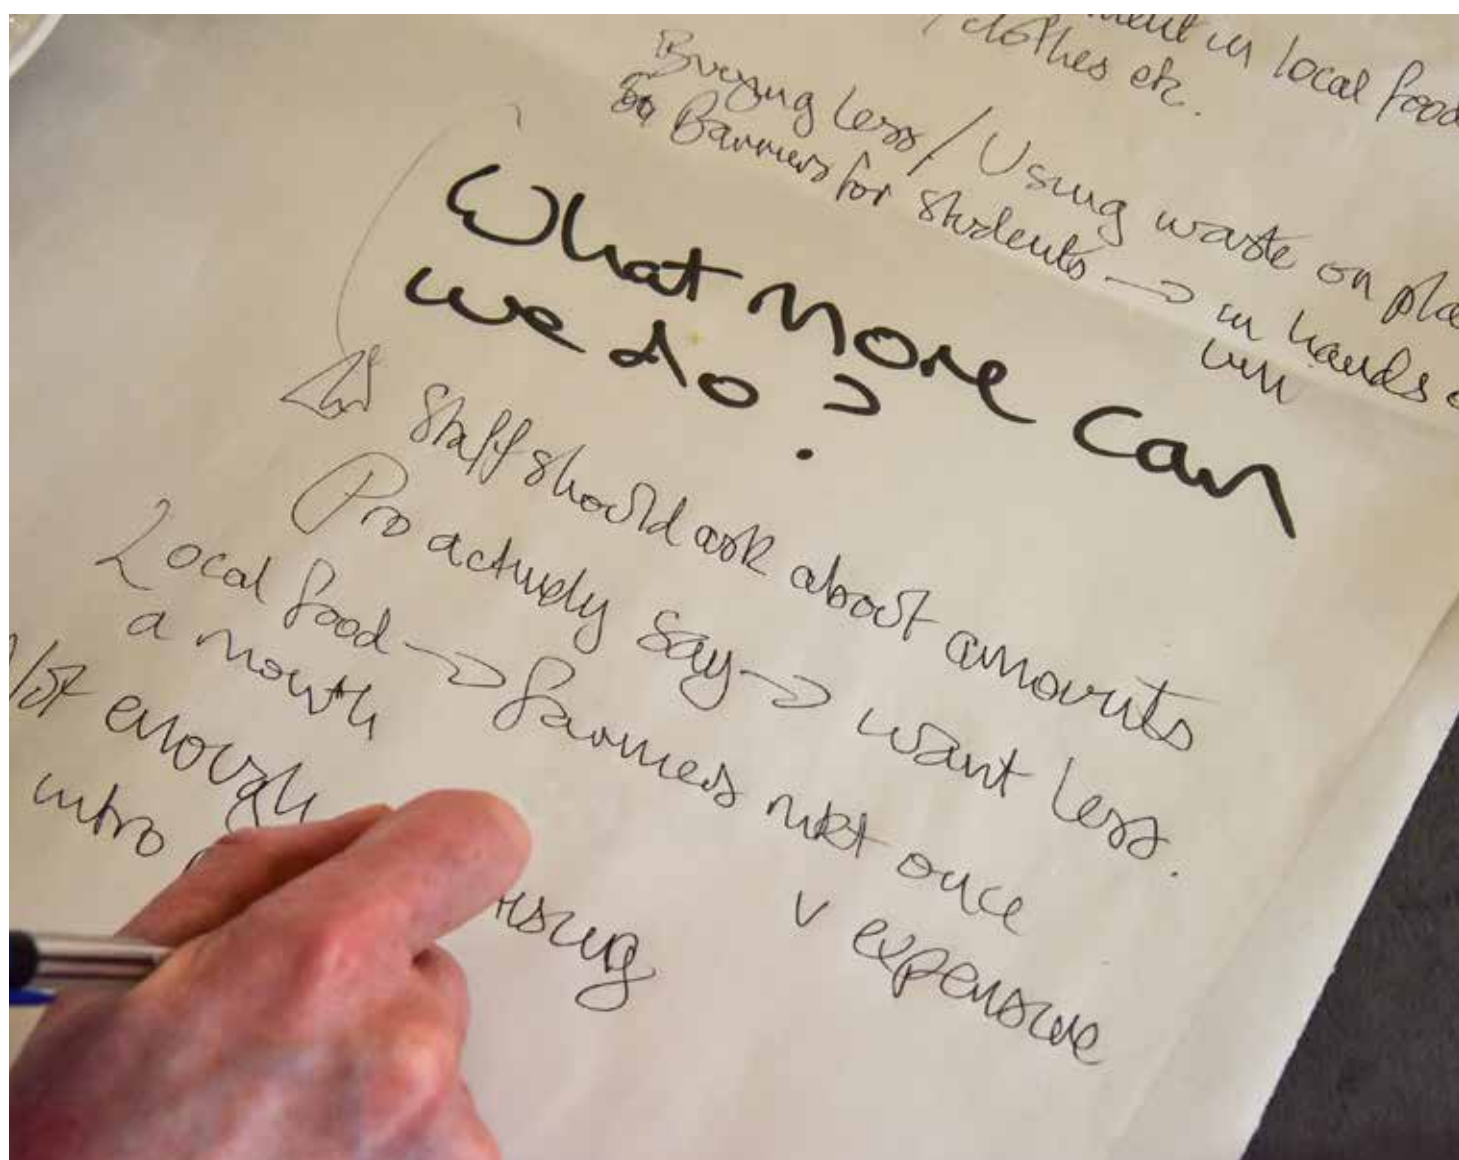 in local food
clothes etc.
Buying less / Using waste on
Barriers for students → in hands
What more can
we do?
Staff should ask about amounts
Pro actively say → want less.
Local food → farmers mkt once
a month
v expensive
Not enough
intro